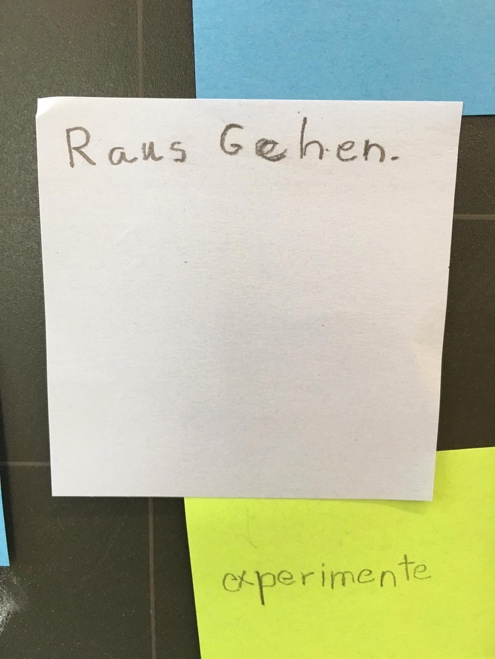 Raus Gehen.
experimente